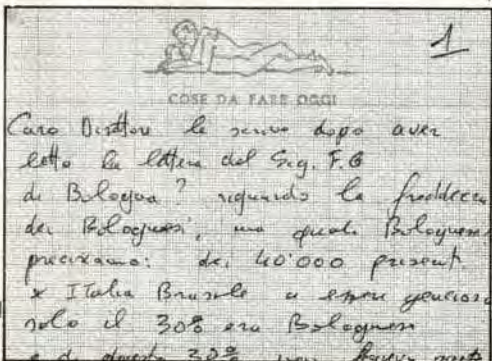 1
COSE DA FARE OGGI
Caro Direttore le scrivo dopo aver
letto la lettera del Sig. F.G
di Bologna? riguardo la freddezza
dei Bolognesi, ma quali Bolognesi
precisiamo: dei 40'000 presenti
x Italia Brasile a essere generosi
solo il 30% era Bolognesi
e di questo 30%